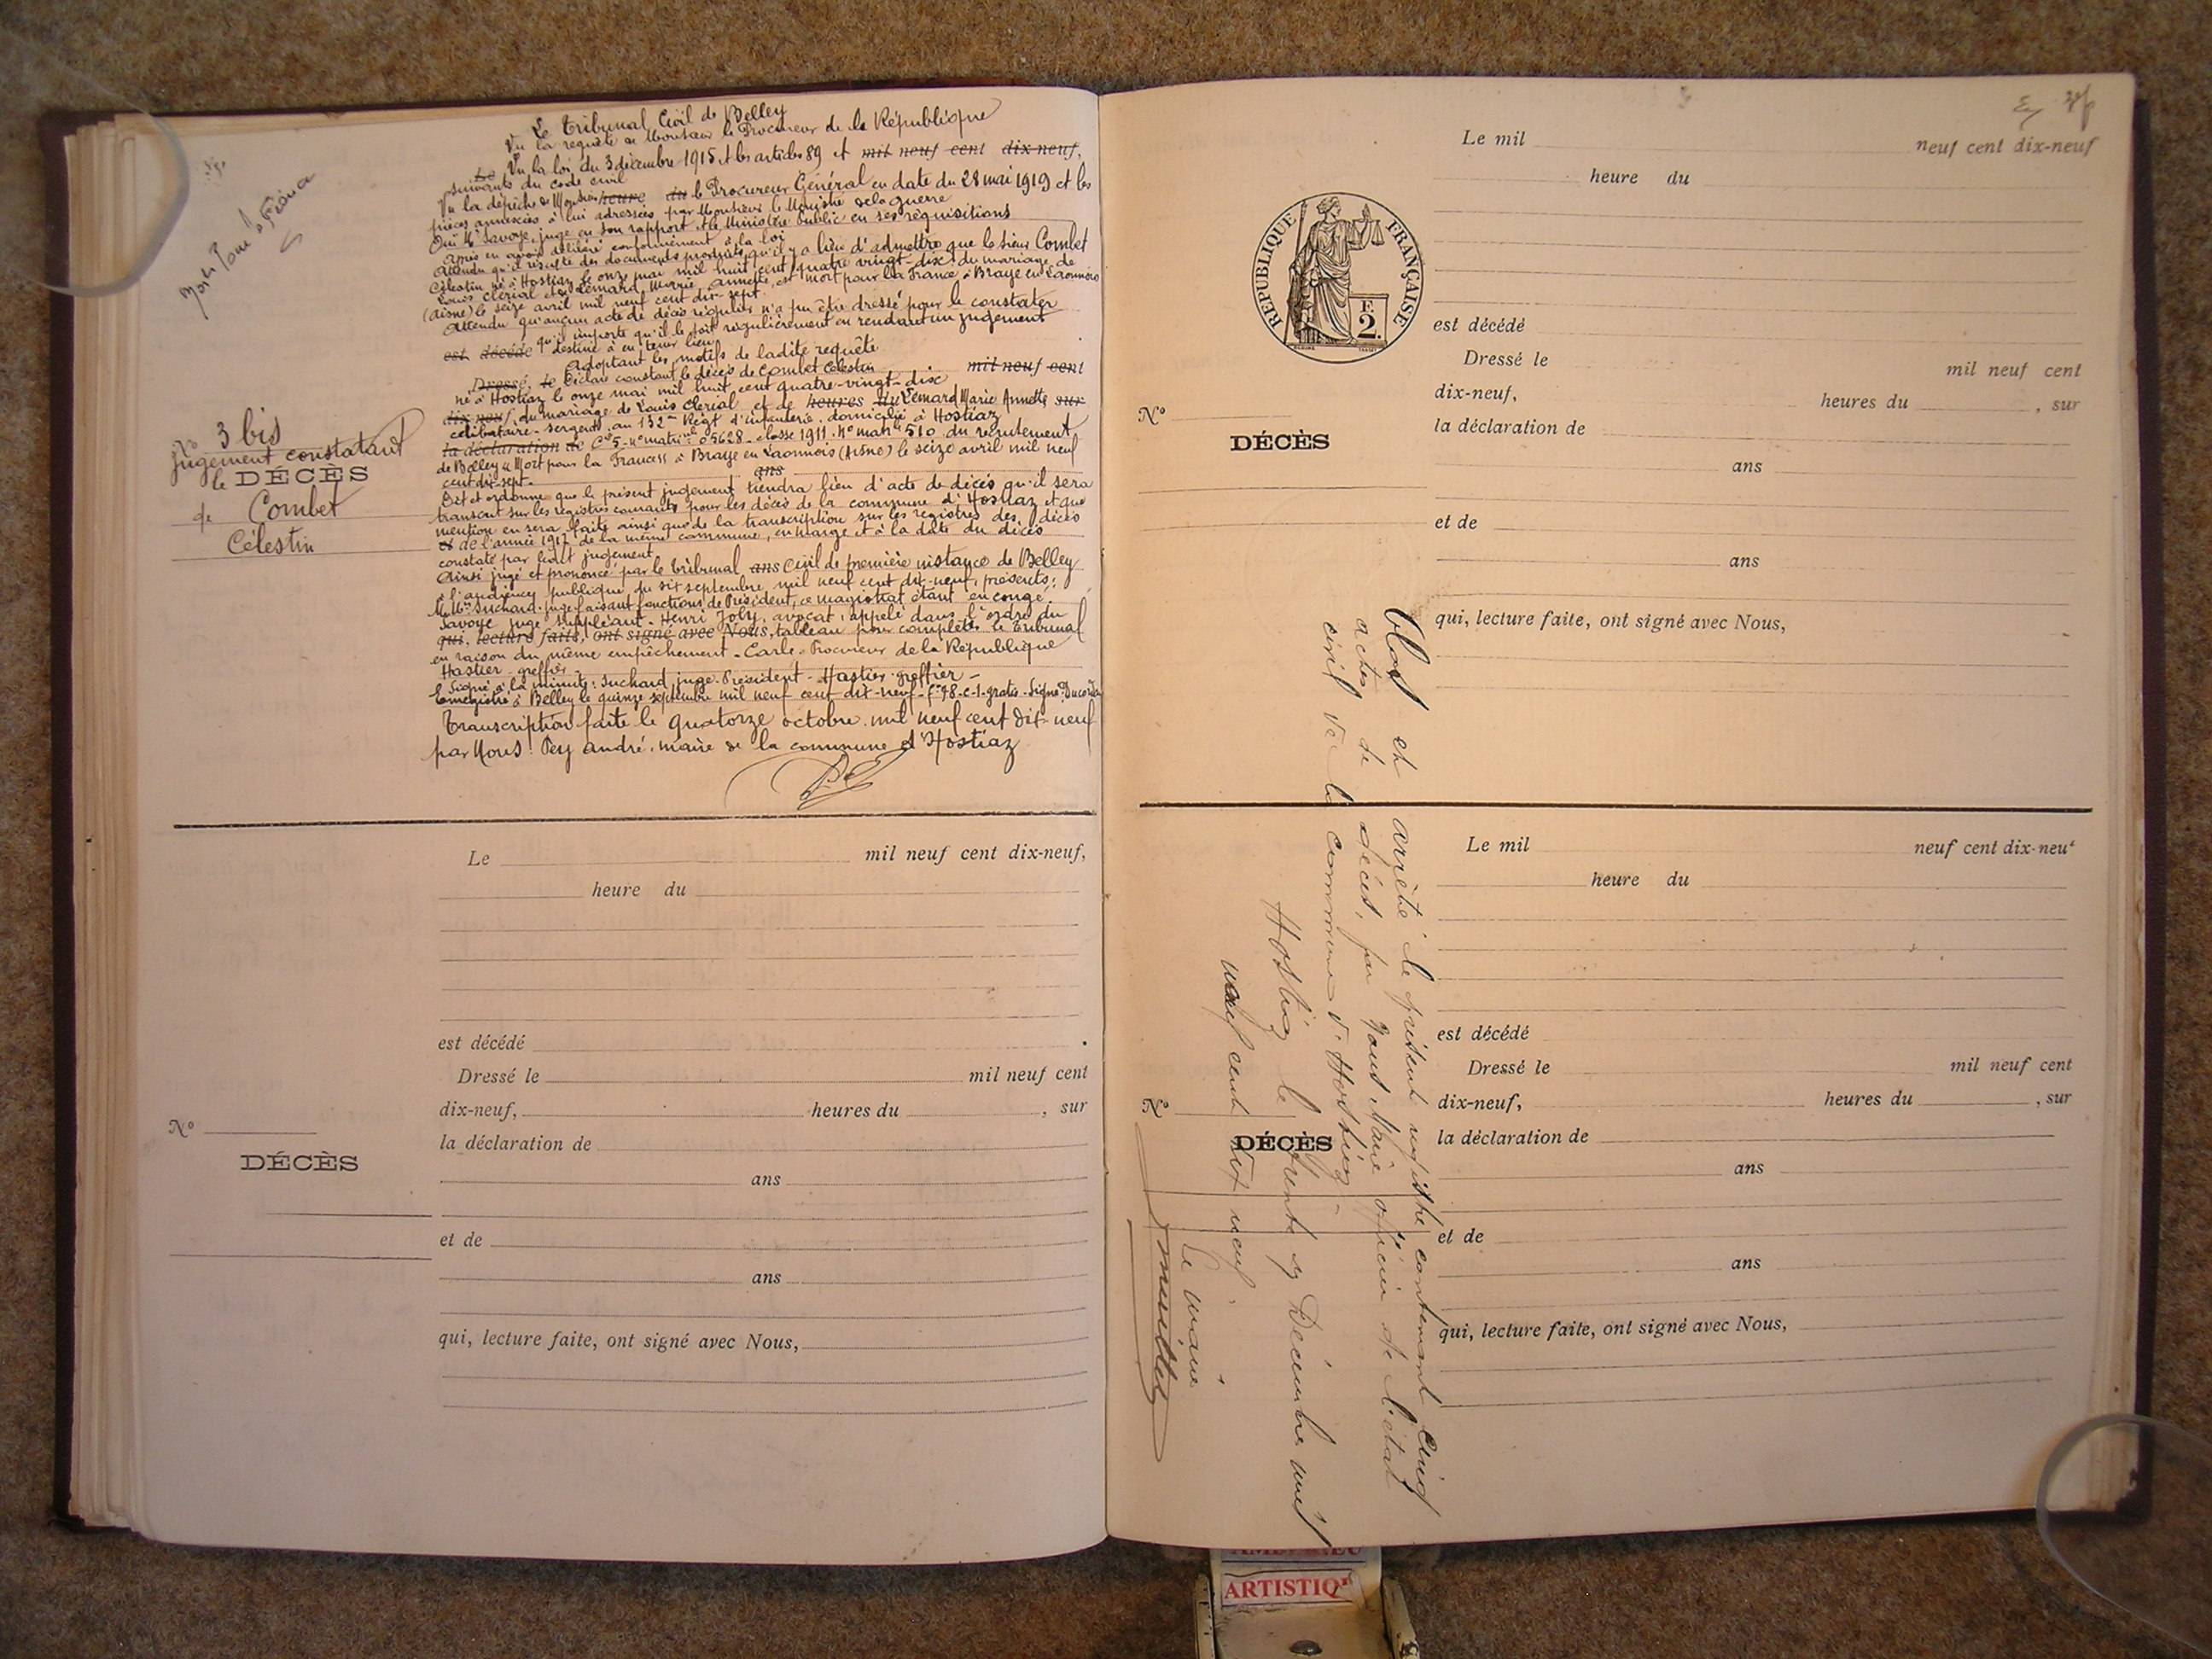 Mort Pour la France
Le Tribunal Civil de Belley
Vu la requête de Monsieur le Procureur de la République
Le Vu la loi du 3 décembre 1915 et les articles 89 et mil neuf cent dix-neuf,
suivants du code civil
Vu la dépêche de Monsieur heure du le Procureur Général en date du 28 mai 1919 et les
pièces annexées à lui adressées par Monsieur le Ministre de la guerre
Ouï Mr Savoye, juge en son rapport et le Ministère Public en ses réquisitions
Après en avoir délibéré conformément à la loi
Attendu qu'il résulte des documents produits qu'il y a lieu d'admettre que le sieur Combet
Célestin né à Hostiaz le onze mai mil huit cent quatre vingt-dix du mariage de
Louis Clérial et de Lémard, Marie, Annette, est mort pour la France à Braye en Laonnois
(Aisne) le seize avril mil neuf cent dix-sept.
Attendu qu'aucun acte de décès régulier n'a pu être dressé pour le constater
qu'il importe qu'il le soit régulièrement en rendant un jugement
est décédé destiné à en tenir lieu
Adoptant les motifs de ladite requête
Dressé, le Déclare constant le décès de Combet Célestin mil neuf cent
né à Hostiaz le onze mai mil huit cent quatre-vingt-dix
dix-neuf, du mariage de Louis Clérial et de heures du Lémard Marie Annette sur
célibataire - sergent, au 132me Régt d'infanterie, domicilié à Hostiaz
la déclaration de Cie 5 - no matricle 05628 - classe 1911 - No matle 510 du recrutement
de Belley "Mort pour la France" à Braye en Laonnois (Aisne) le seize avril mil neuf
cent dix-sept. ans
Dit et ordonne que le présent jugement tiendra lieu d'acte de décès qu'il sera
transcrit sur les registres courants pour les décès de la commune d'Hostiaz et que
mention en sera faite ainsi que de la transcription sur les registres des décès
et de l'année 1917 de la même commune, en marge et à la date du décès
constaté par ledit jugement.
Ainsi jugé et prononcé par le tribunal ans Civil de première instance de Belley
à l'audience publique du six septembre mil neuf cent dix-neuf, présents:
M.Mrs Suchard juge faisant fonctions de Président, ce magistrat étant en congé.
Savoye juge suppléant - Henri Joly, avocat, appelé dans l'ordre du
qui, lecture faite, ont signé avec Nous, tableau pour compléter le Tribunal
en raison du même empêchement - Carle - Procureur de la République
Hastier - greffier -
Signé à la minute: Suchard, juge - Président - Hastier - greffier -
Enregistré à Belley le quinze septembre mil neuf cent dix-neuf - Fo 98 - c - 1 - gratis - Signé:
Transcription faite le quatorze octobre mil neuf cent dix-neuf
par Nous: Pey André, maire de la commune d'Hostiaz
No 3 bis
jugement constatant
le DÉCÈS
de Combet
Célestin
Le mil neuf cent dix-neuf,
heure du
est décédé
Dressé le mil neuf cent
dix-neuf, heures du , sur
No
DÉCÈS
la déclaration de
ans
et de
ans
qui, lecture faite, ont signé avec Nous,
Le mil neuf cent dix-neuf
heure du
RÉPUBLIQUE FRANÇAISE
F.
2.
est décédé
Dressé le mil neuf cent
dix-neuf, heures du , sur
No
DÉCÈS
la déclaration de
ans
et de
ans
qui, lecture faite, ont signé avec Nous,
Le mil neuf cent dix-neuf
heure du
est décédé
Dressé le mil neuf cent
dix-neuf, heures du , sur
No
DÉCÈS
la déclaration de
ans
et de
ans
qui, lecture faite, ont signé avec Nous,
Clos et arrêté le présent registre contenant Cinq
actes de décès, par Nous Maire officier de l'état
civil de la commune d'Hostiaz -
Hostiaz le trente et Décembre mil
neuf cent dix neuf.
Le maire
ARTISTIQ